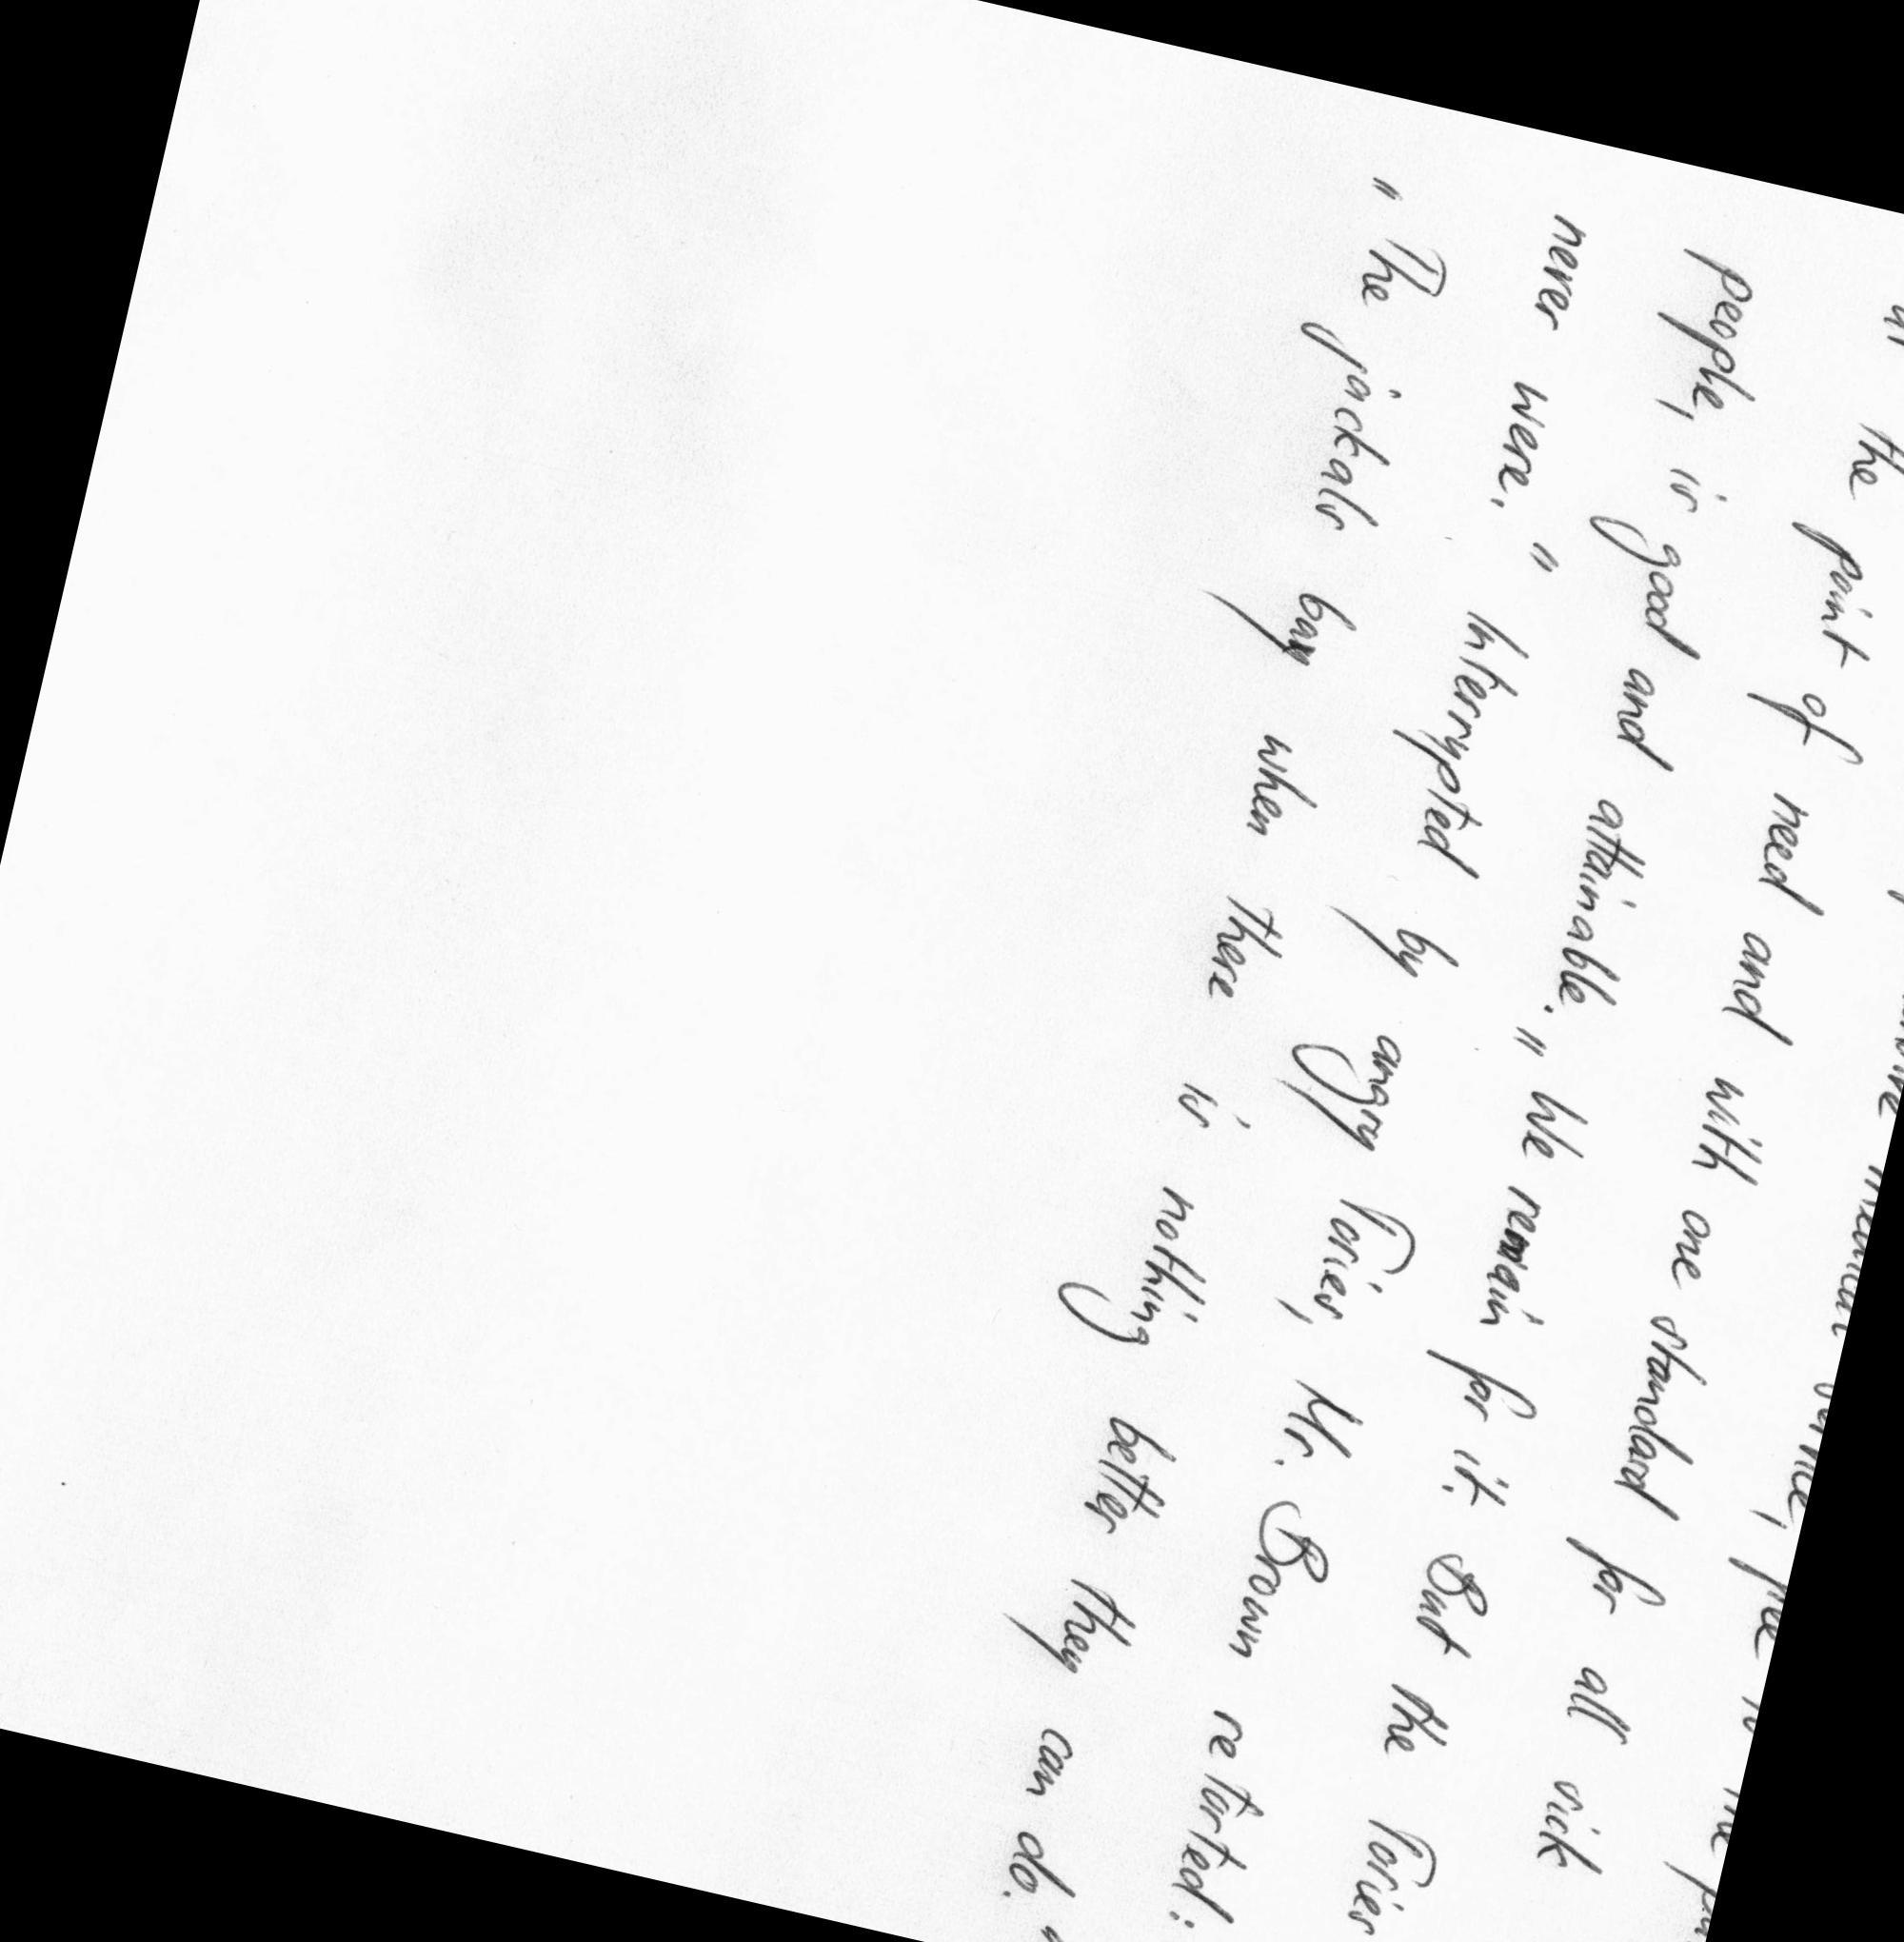 medical service, free to the
at the point of need and with one standard for all sick
people, is good and attainable. " We remain for it. But the Tories
never were. " Interrypted by angry Tories, Mr. Brown retorted:
" The jackals bay when there is nothing better they can do. "